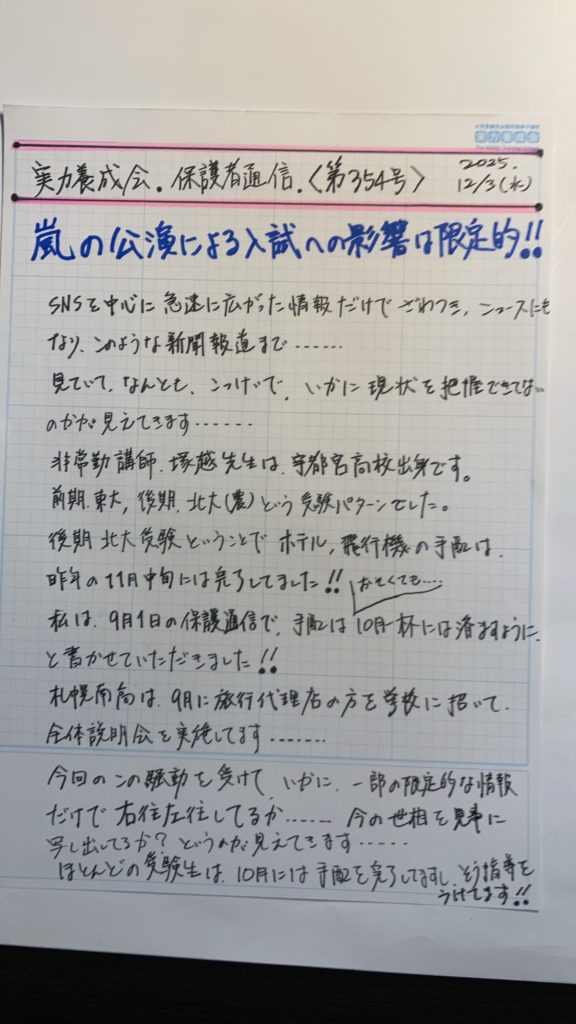 実力養成会
実力養成会。保護者通信.〈第354号〉
2025.
12/3(水)
嵐の公演による入試への影響は限定的!!
SNSを中心に急速に広がった情報だけでざわつき、ニュースにも
なり、このような新聞報道まで……
見ていて、なんとも、こっけいで、いかに現状を把握できてない
のかが見えてきます……
非常勤講師.塚越先生は、宇都宮高校出身です。
前期.東大,後期.北大(農)という受験パターンでした。
後期北大受験ということでホテル,飛行機の手配は、
昨年の11月中旬には完了してました!!
おそくても……
私は、9月1日の保護通信で、手配は10月一杯には済ますように、
と書かせていただきました!!
札幌南高は、9月に旅行代理店の方を学校に招いて、
全体説明会を実施してます……
今回のこの騒動を受けて、いかに、一部の限定的な情報
だけで右往左往してるか……今の世相を見事に
写し出してるか?というのが見えてきます……
ほとんどの受験生は、10月には手配を完了してますし、そう指導を
うけてます!!